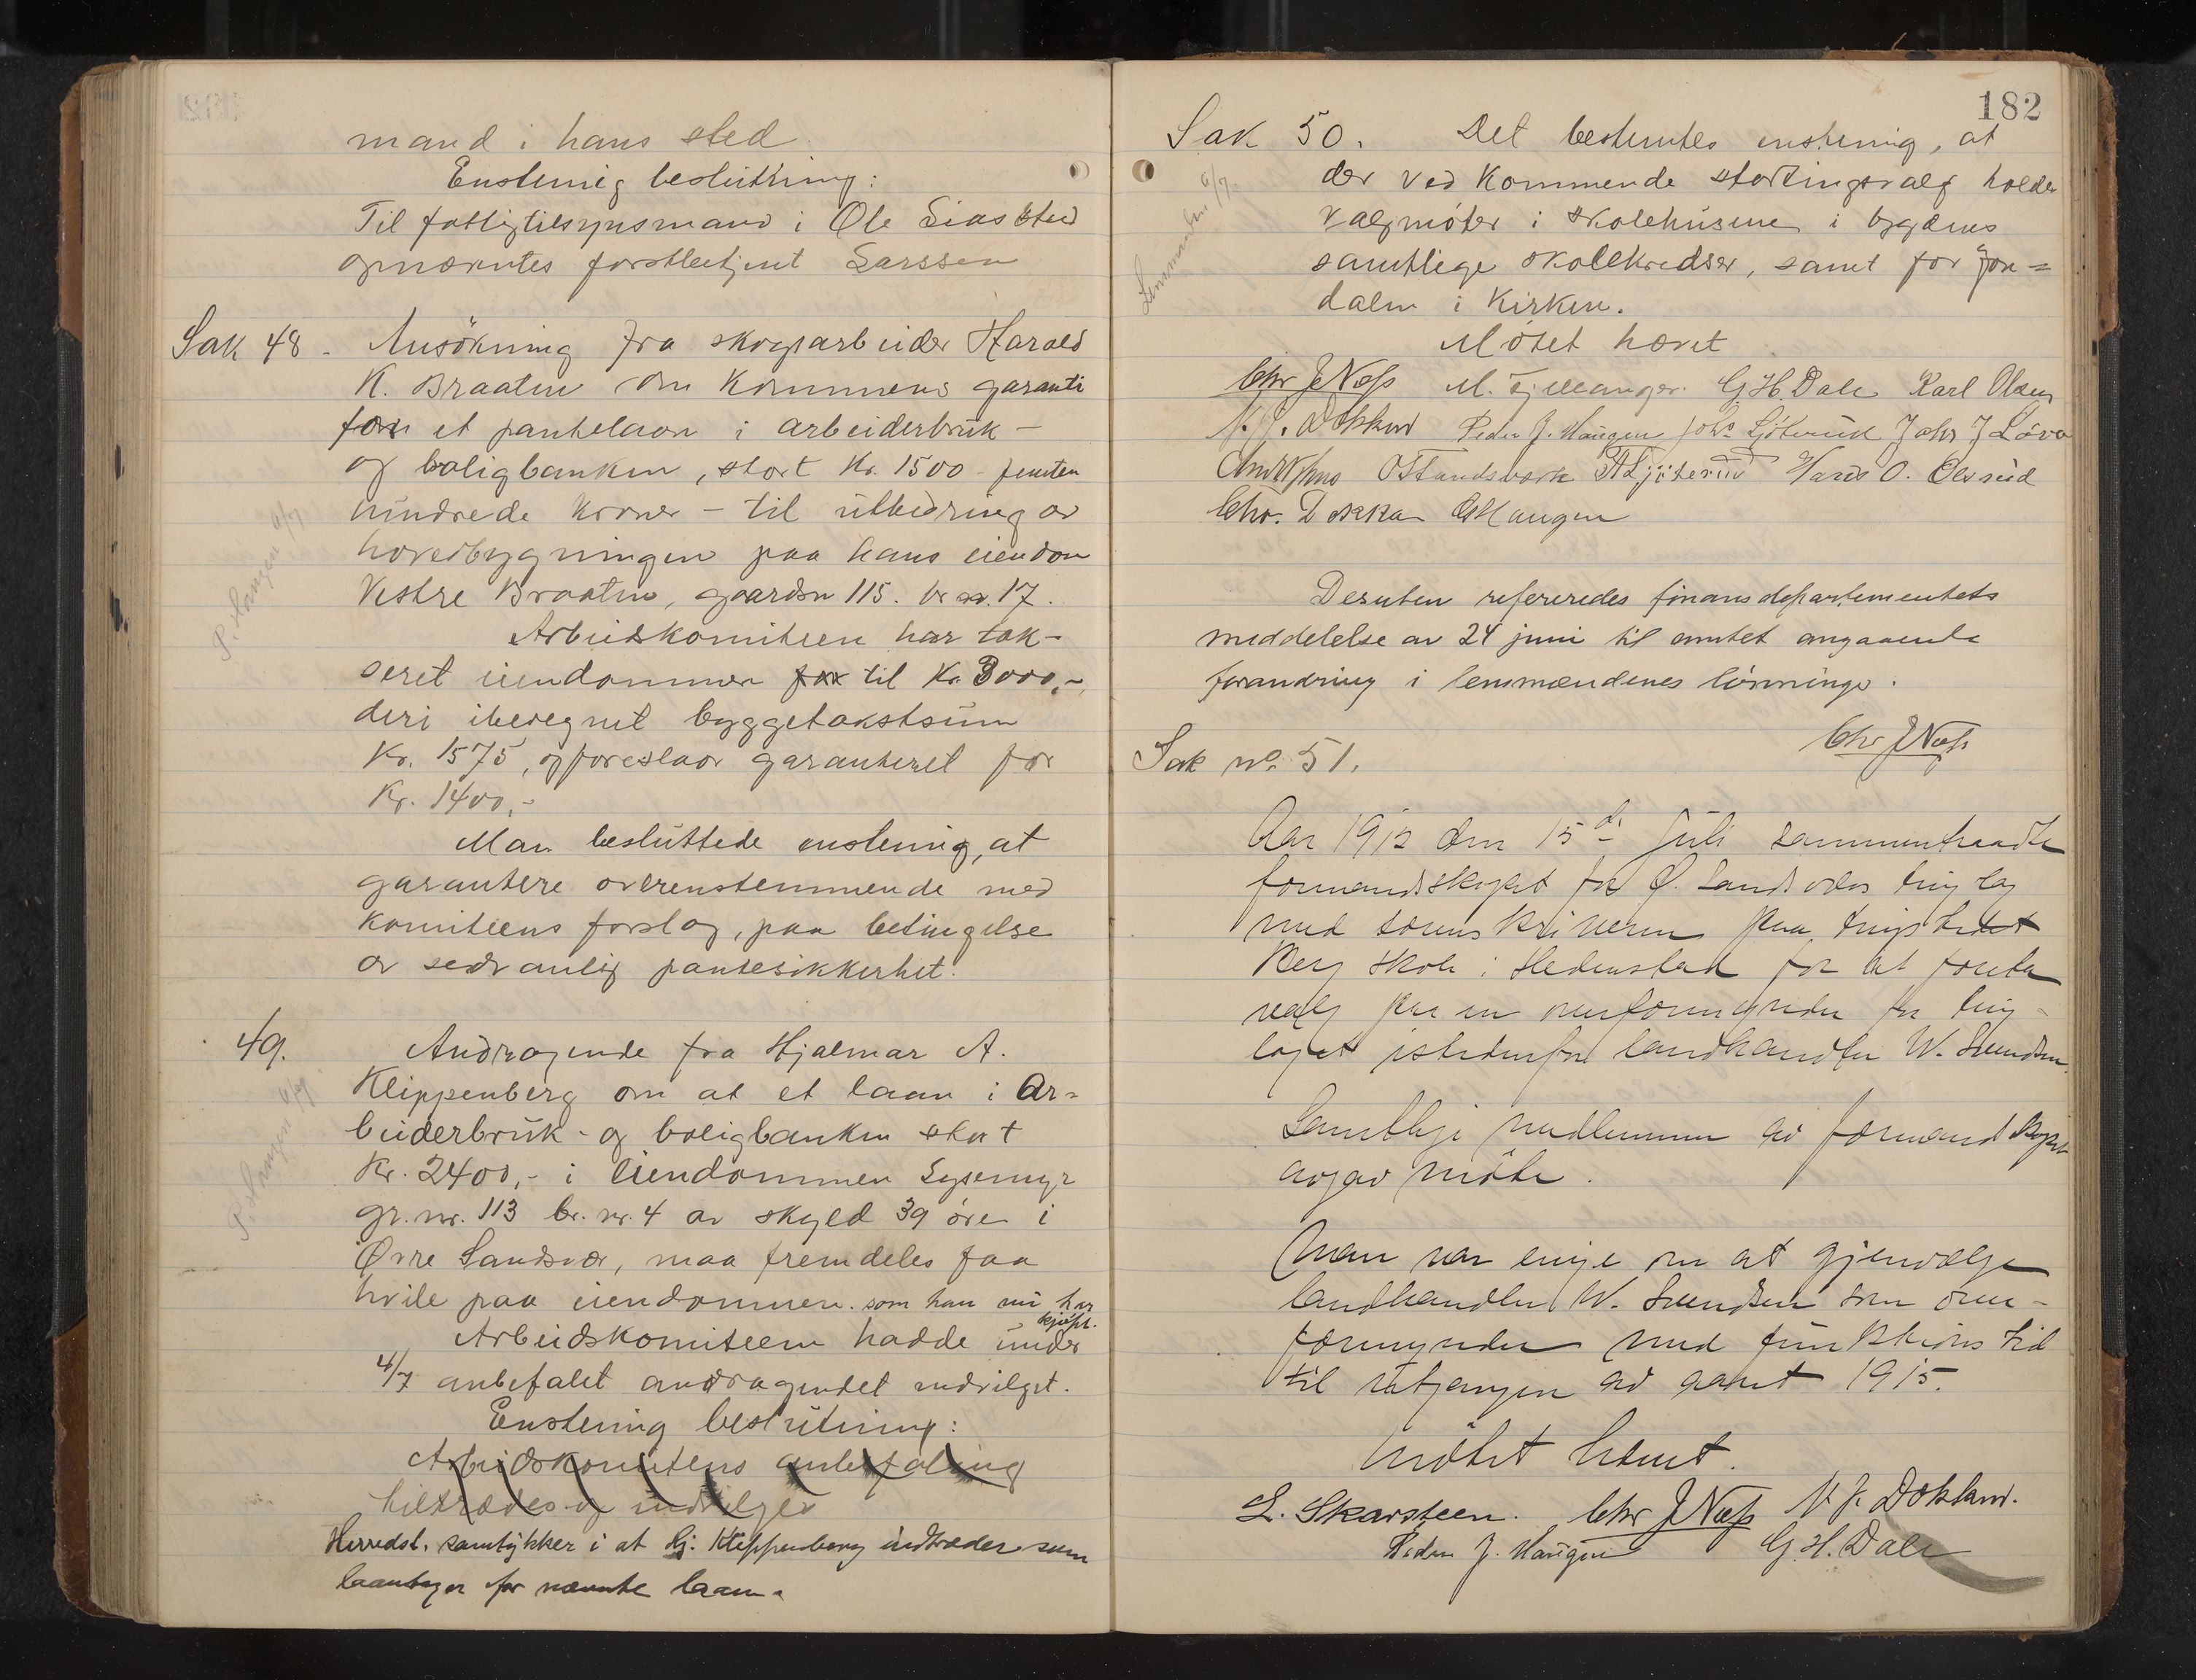 mand i hans sted
Enstemig beslutning:
Til fattigtilsynsmand i Ole Lias sted
opnævntes forstbetjent Larssen
Sak 48 - Ansökning fra skogsarbeider Harald
K. Braaten om kommunens garanti
for et pantelaan i arbeiderbruk-
og boligbanken, stort Kr. 1500 - femten
hundrede kroner - til utbedring av
hovedbygningen paa hans eiendom
Vestre Braaten, gaardsn 115. br nr. 17.
Arbeidskomiteen har tak-
seret eiendommen for til Kr. 3000,-,
deri iberegnet byggetakstsum
Kr. 1575, og foreslaar garanteret for
Kr. 1400,-
Man besluttede enstemig, at
garantere overensstemmende med
komiteens forslag, paa betingelse
av sedvanlig pantesikkerhet.
49. Andragende fra Hjalmar A.
Klippenberg om at et laan i Ar-
beiderbruk- og boligbanken stort
Kr. 2400,- i eiendommen Lysemyr
gr. nr. 113 br. nr. 4 av skyld 39 öre i
Øvre Sandsvær, maa fremdeles faa
hvile paa eiendommen som han nu har
kjöpt.
Arbeidskomiteen hadde under
4/7 anbefalet andragendet indvilget.
Enstemig beslutning:
Arbeidskomiteens anbefaling
tiltrædes og indvilges
Herredst. samtykker i at Hj. Klippenberg indtræder som
laantager for nævnte laan.
P. Haugen 6/7
P. Haugen 6/7
182
Sak 50. Det bestemtes enstemig, at
der ved kommende stortingsvalg holdes
valgmöter i skolehusene i bygdens
samtlige skolekredser, samt for Jon-
dalen i Kirken.
Mötet hævet
Lensmanden 6/7
Chr J Næss M. Tjellanger. G. H. Dale Karl Olsen
N. J. Dokken Peder J. Haugen Johs Ljöterud Johs J Løvo
O Standsværk A Ljöterud Hans O. Olsrud
Chr. Dokka Haugen
Desuten refereredes finansdepartementets
meddelelse av 24 juni til amtet angaaende
forandring i lensmændenes lönninger.
Chr J Næss
Sak no. 51.
Aar 1912 den 15de Juli sammentraadte
formandskapet for Ø. Sandsvær tinglag
med sorenskriveren paa tingstedet
Berg skole i Hedenstad for at foreta
valg paa en overformynder for ting-
laget istedenfor landhandler W. Svendsen.
Samtlige medlemmer av formandskapet
avgav möte.
Man var enige om at gjenvælge
landhandler W. Svendsen som over-
formynder med funktionstid
til utgangen av aaret 1915.
Mötet hævet.
L. Skarsteen. Chr J Næss N. J. Dokkand.
Peder J. Haugen G. H. Dale